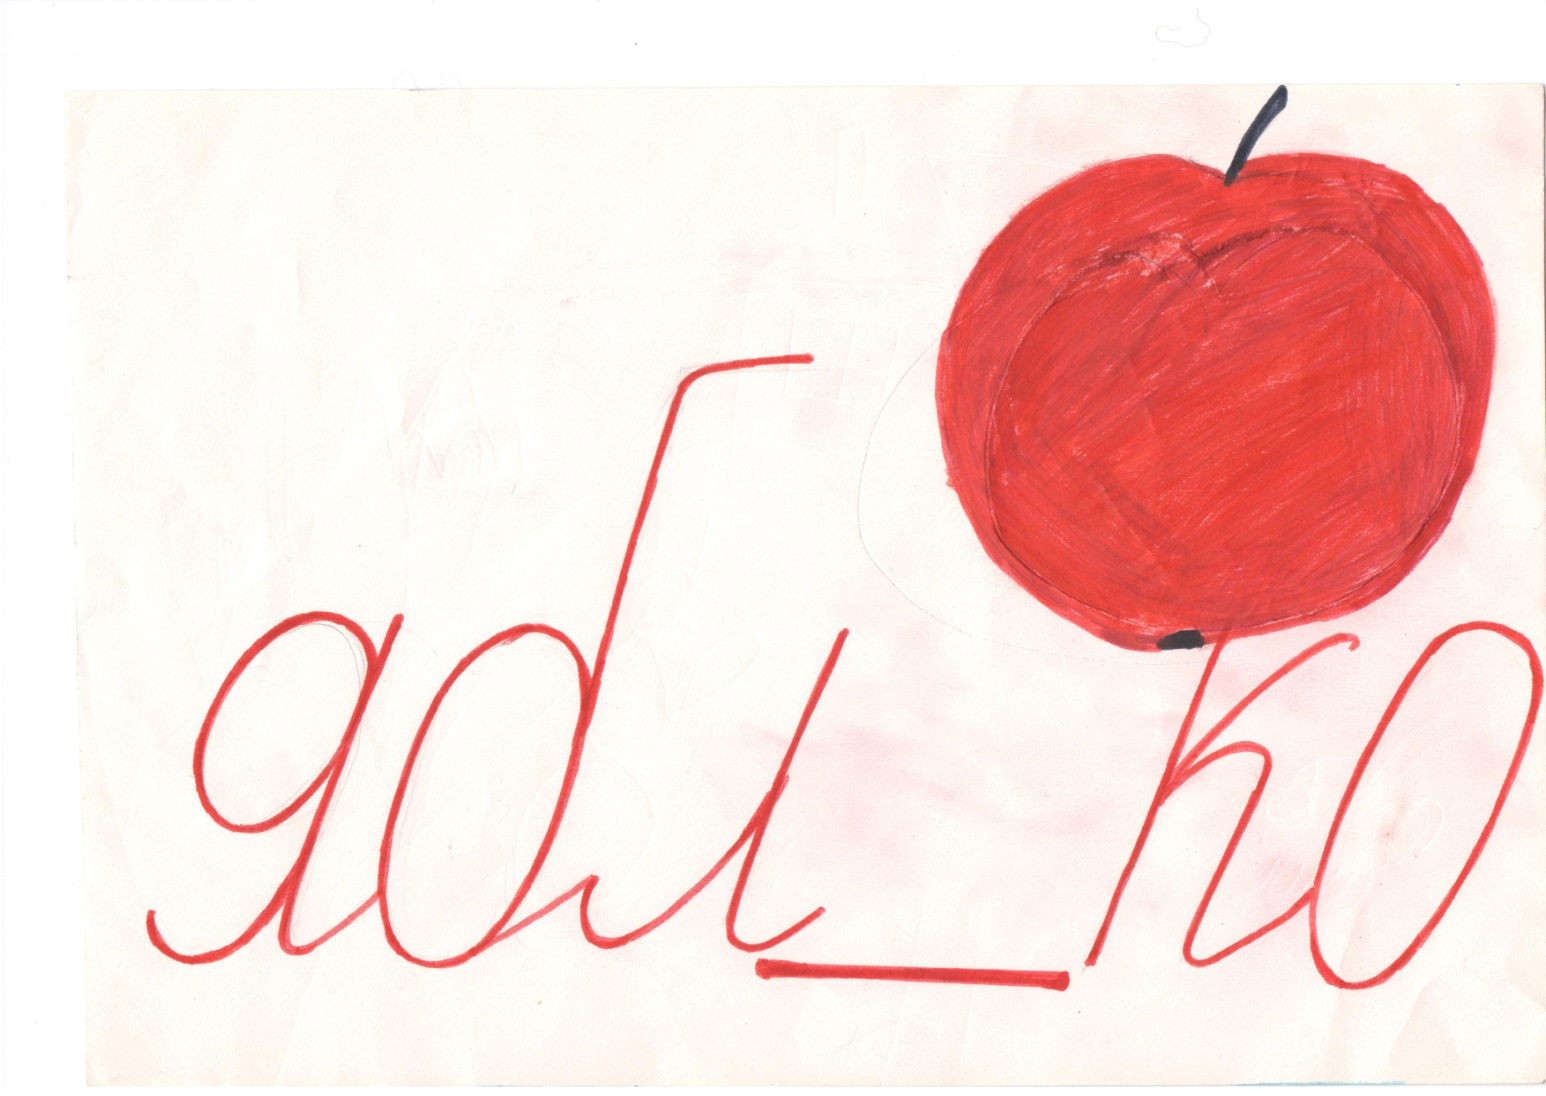 ябл_ко